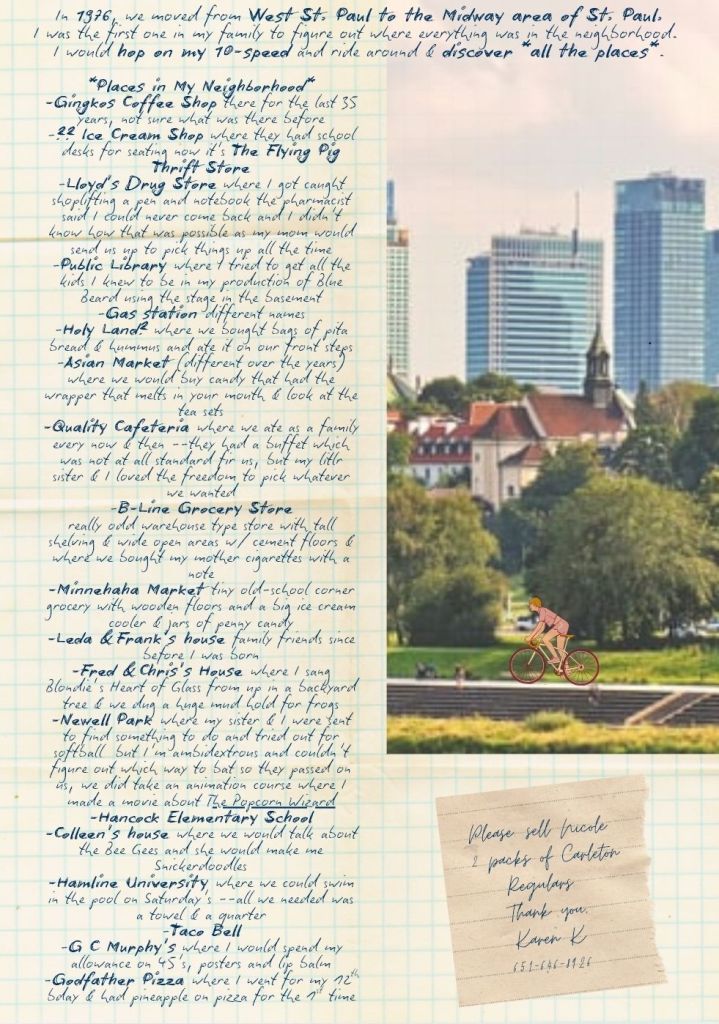 In 1976, we moved from West St. Paul to the Midway area of St. Paul.
I was the first one in my family to figure out where everything was in the neighborhood.
I would hop on my 10-speed and ride around & discover *all the places*.
*Places in My Neighborhood*
-Gingkos Coffee Shop there for the last 35
years, not sure what was there before
-?? Ice Cream Shop where they had school
desks for seating now it's The Flying Pig
Thrift Store
-Lloyd's Drug Store where I got caught
shoplifting a pen and notebook the pharmacist
said I could never come back and I didn't
know how that was possible as my mom would
send us up to pick things up all the time
-Public Library where I tried to get all the
kids I knew to be in my production of Blue
Beard using the stage in the basement
-Gas station different names
-Holy Land? where we bought bags of pita
bread & hummus and ate it on our front steps
-Asian Market (different over the years)
where we would buy candy that had the
wrapper that melts in your mouth & look at the
tea sets
-Quality Cafeteria where we ate as a family
every now & then --they had a buffet which
was not at all standard fir us, but my litlr
sister & I loved the freedom to pick whatever
we wanted
-B-Line Grocery Store
really odd warehouse type store with tall
shelving & wide open areas w/ cement floors &
where we bought my mother cigarettes with a
note
-Minnehaha Market tiny old-school corner
grocery with wooden floors and a big ice cream
cooler & jars of penny candy
-Leda & Frank's house family friends since
before I was born
-Fred & Chris's House where I sang
Blondie's Heart of Glass from up in a backyard
tree & we dug a huge mud hold for frogs
-Newell Park where my sister & I were sent
to find something to do and tried out for
softball but I'm ambidextrous and couldn't
figure out which way to bat so they passed on
us, we did take an animation course where I
made a movie about The Popcorn Wizard
-Hancock Elementary School
-Colleen's house where we would talk about
the Bee Gees and she would make me
Snickerdoodles
-Hamline University where we could swim
in the pool on Saturday's --all we needed was
a towel & a quarter
-Taco Bell
-G C Murphy's where I would spend my
allowance on 45's, posters and lip balm
-Godfather Pizza where I went for my 12th
bday & had pineapple on pizza for the 1st time
Please sell Nicole
2 packs of Carleton
Regulars
Thank you.
Karen K
651-646-8926